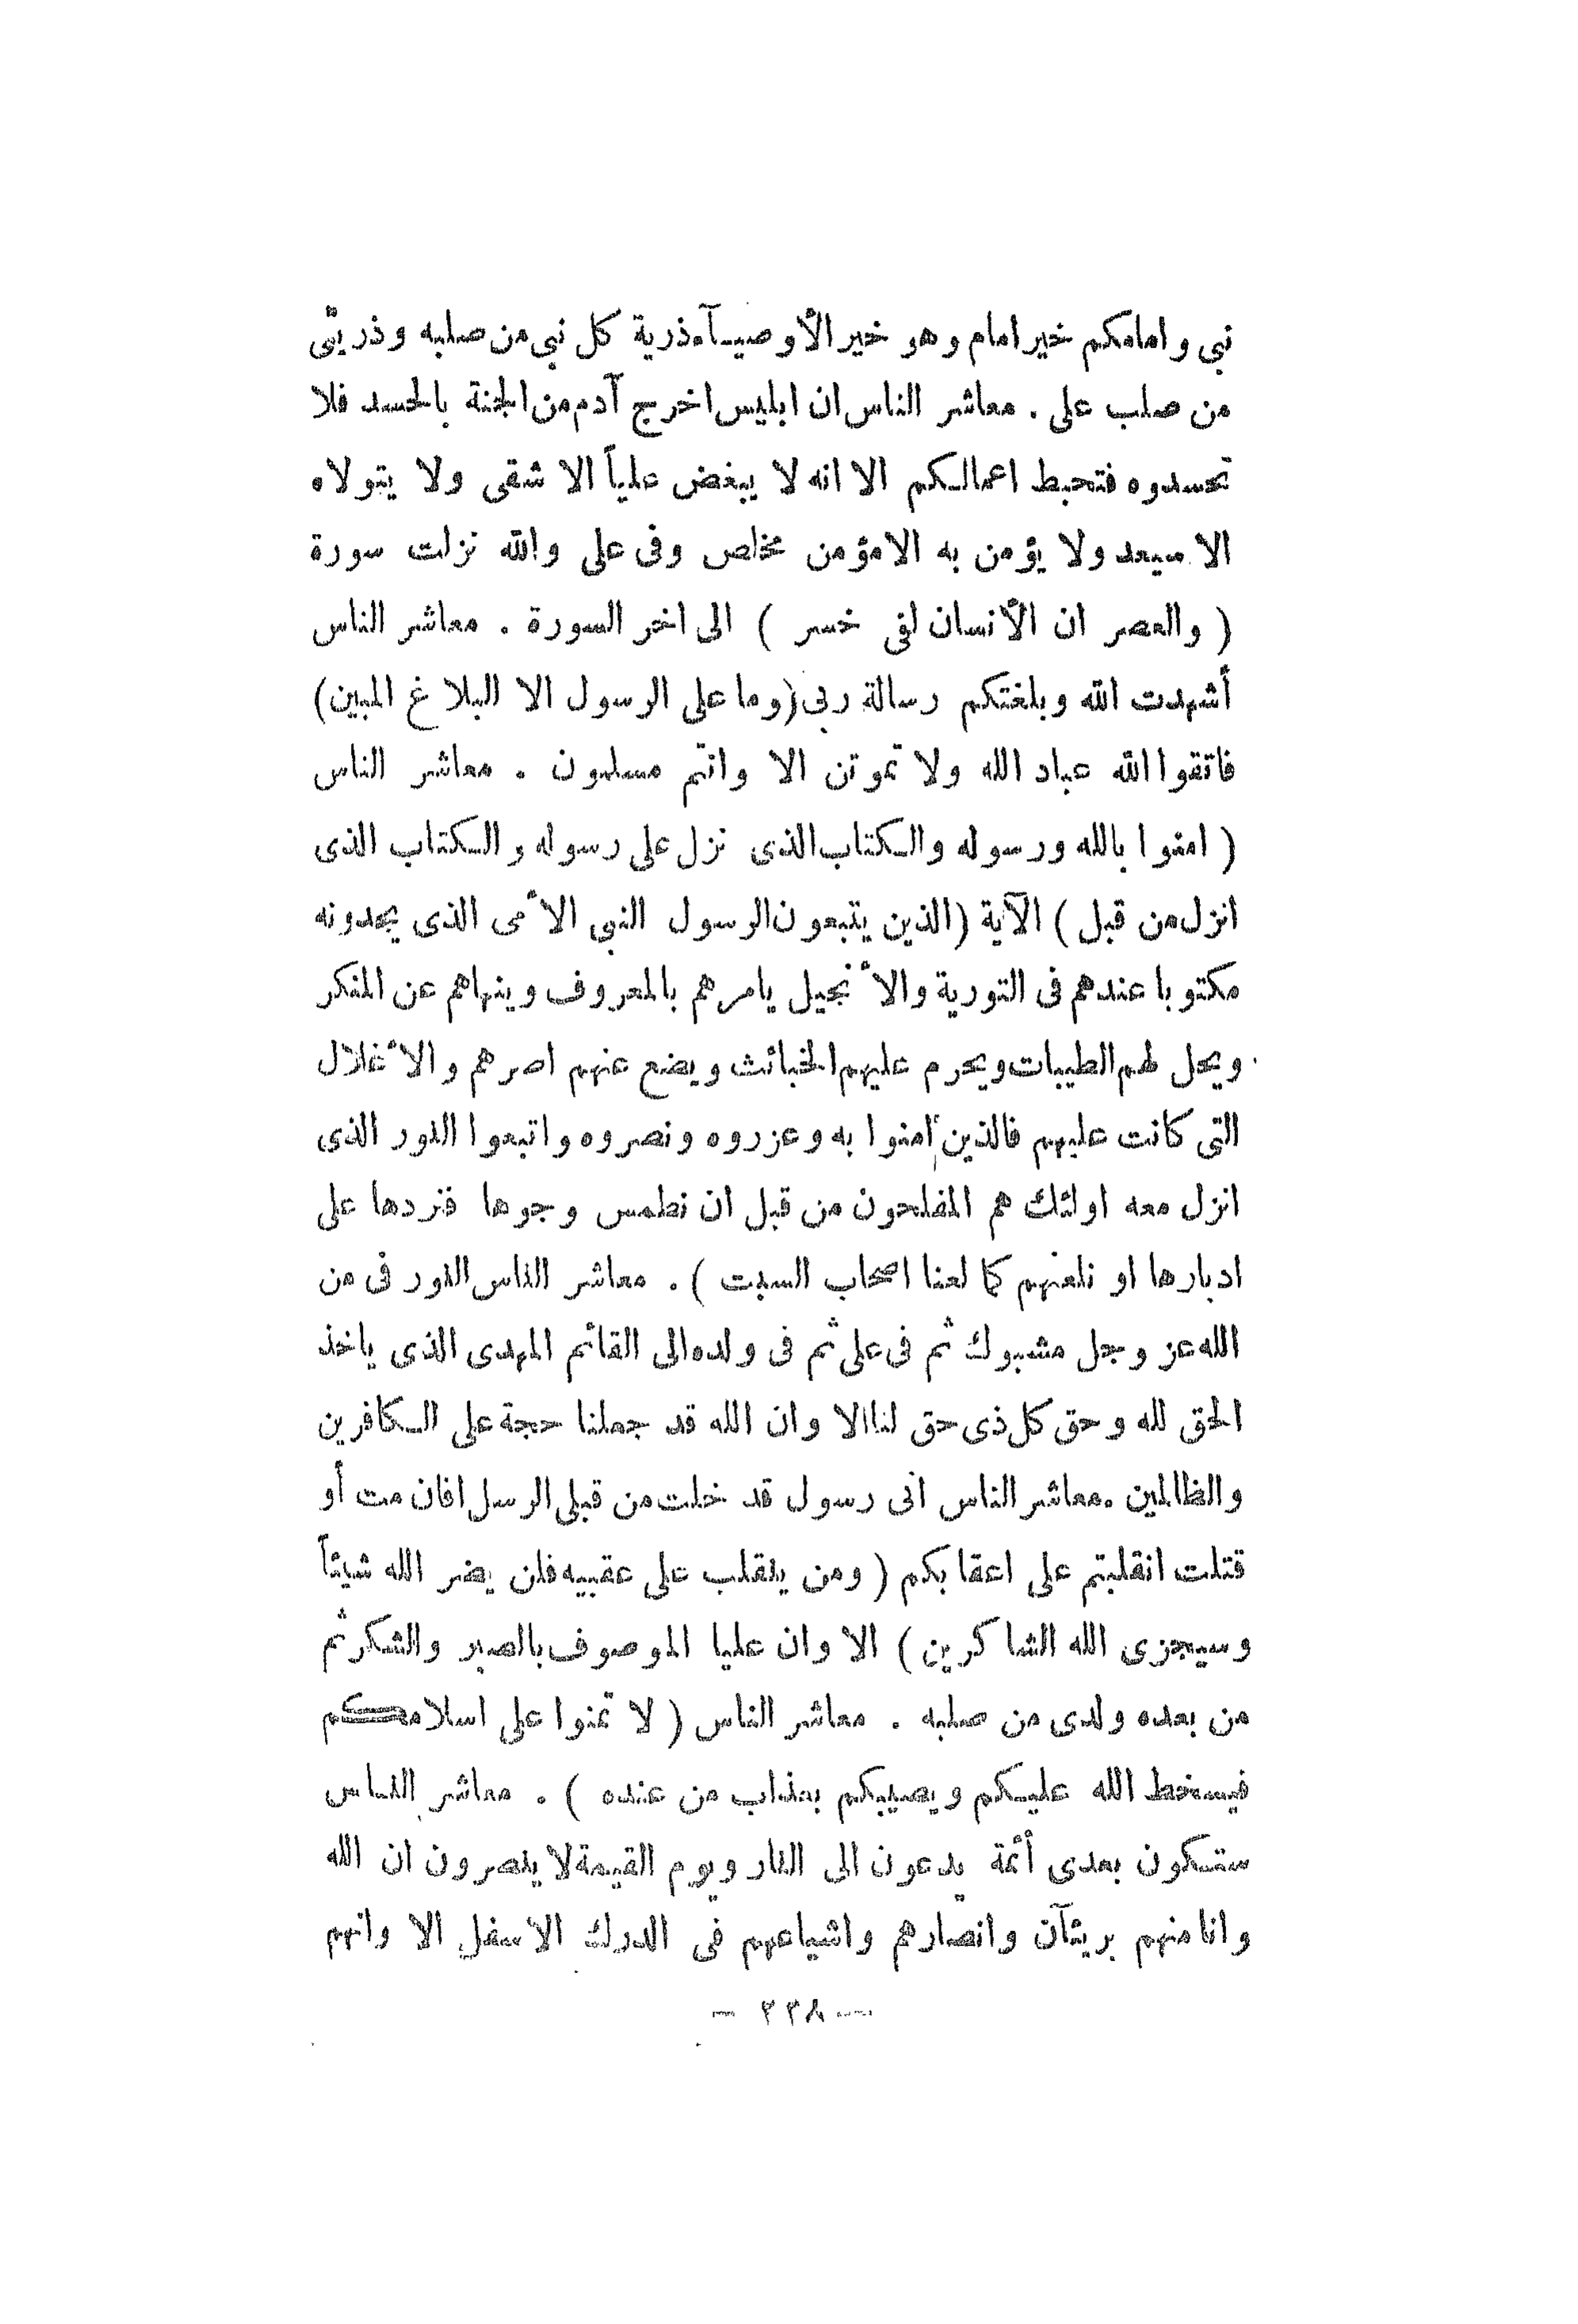 نبى وامامكم خير امام وهو خير الأوصيآء ذرية كل نبى من صلبه وذريتى
من صلب على . معاشر الناس ان ابليس اخرج آدم من الجنة بالحسد فلا
تحسدوه فتحبط اعمالكم الا انه لا يبغض علياً الا شقى ولا يتولاه
الا سيعد ولا يؤمن به الا مؤمن مخلص وفى على والله نزلت سورة
( والعصر ان الأنسان لفى خسر ) الى اخر السورة . معاشر الناس
أشهدت الله وبلغتكم رسالة ربى (وما على الرسول الا البلاغ المبين)
فاتقوا الله عباد الله ولا تموتن الا وانتم مسلمون . معاشر الناس
( امنوا بالله ورسوله والكتاب الذى نزل على رسوله والكتاب الذى
انزل من قبل ) الآية (الذين يتبعون الرسول النبي الأمى الذى يجدونه
مكتوبا عندهم فى التورية والأنجيل يامرهم بالمعروف وينهاهم عن المنكر
ويحل لهم الطيبات ويحرم عليهم الخبائث ويضع عنهم اصرهم والأغلال
التى كانت عليهم فالذين امنوا به وعزروه ونصروه واتبعوا النور الذى
انزل معه اولئك هم المفلحون من قبل ان نطمس وجوها فنردها على
ادبارها او نلعنهم كما لعنا اصحاب السبت ) . معاشر الناس النور فى من
الله عز وجل مشبوك ثم فى على ثم فى ولده الى القائم المهدى الذى ياخذ
الحق لله وحق كل ذى حق لنا الا وان الله قد جعلنا حجة على الكافرين
والظالمين . معاشر الناس انى رسول قد خلت من قبلى الرسل افان مت أو
قتلت انقلبتم على اعقابكم ( ومن ينقلب على عقبيه فلن يضر الله شيئاً
وسيجزى الله الشاكرين ) الا وان عليا الموصوف بالصبر والشكر ثم
من بعده ولدى من صلبه . معاشر الناس ( لا تمنوا على اسلامكم
فيسخط الله عليكم ويصيبكم بعذاب من عنده ) . معاشر الناس
ستكون بعدى أئمة يدعون الى النار ويوم القيمة لا ينصرون ان الله
وانا منهم بريئآن وانصارهم واشياعهم فى الدرك الاسفل الا وانهم
— ٢٣٨ —